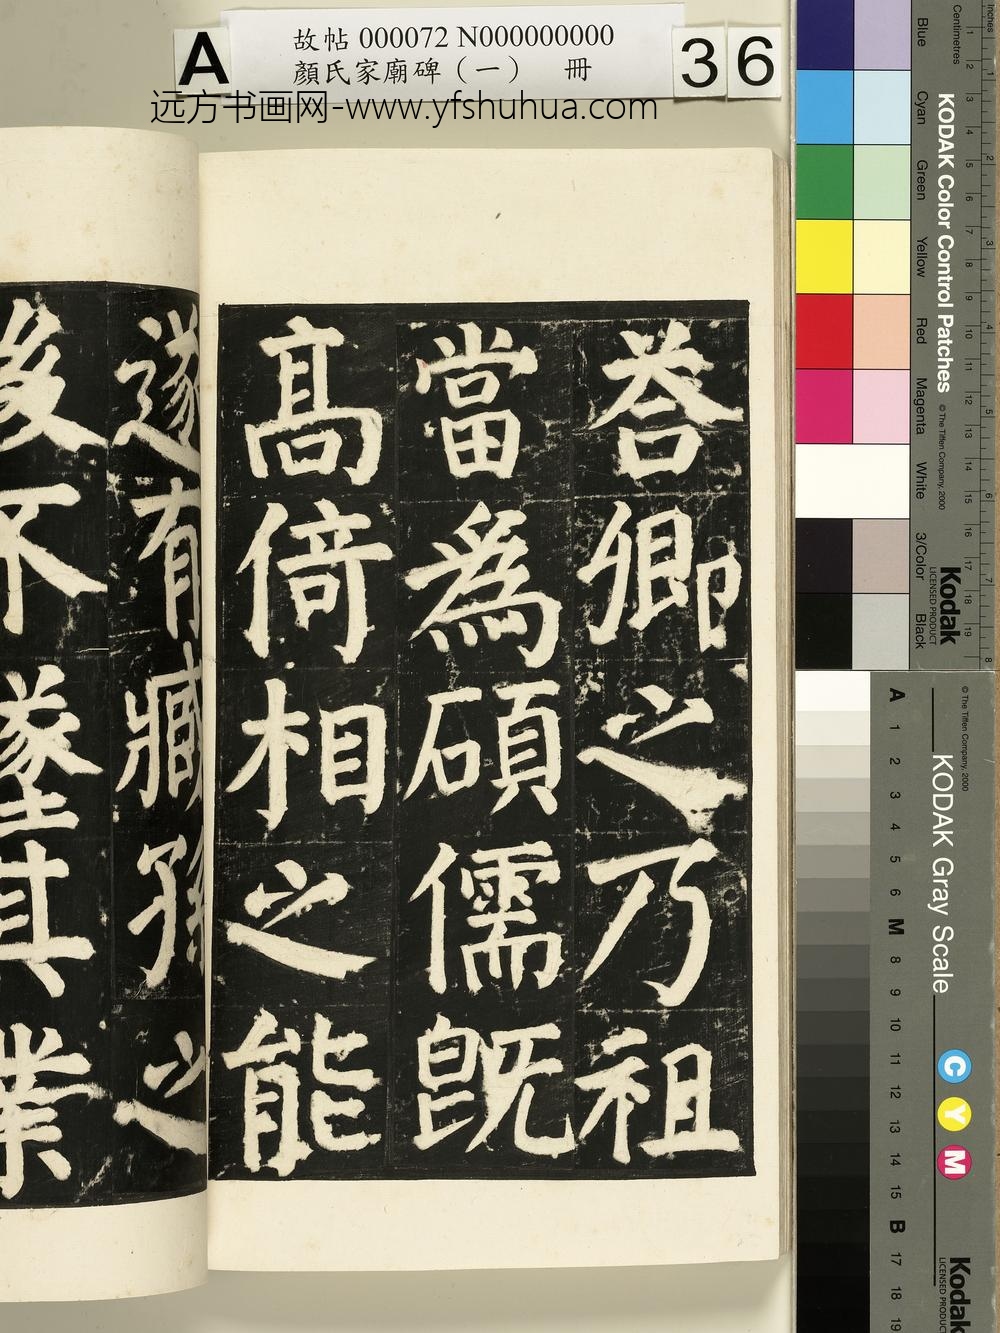 A
故帖 000072 N000000000
顏氏家廟碑（一） 冊
36
远方书画网-www.yfshuhua.com
荅卿之乃祖
當為碩儒既
高倚相之能
遂有臧孫之
後不墜其業
KODAK Color Control Patches
© The Tiffen Company, 2000
Kodak
LICENSED PRODUCT
Inches
Centimetres
Blue
Cyan
Green
Yellow
Red
Magenta
White
3/Color
Black
1 2 3 4 5 6 7 8 9 10 11 12 13 14 15 16 17 18 19
1 2 3 4 5 6 7 8
KODAK Gray Scale
© The Tiffen Company, 2000
C
Y
M
Kodak
LICENSED PRODUCT
A 1 2 3 4 5 6 M 8 9 10 11 12 13 14 15 B 17 18 19